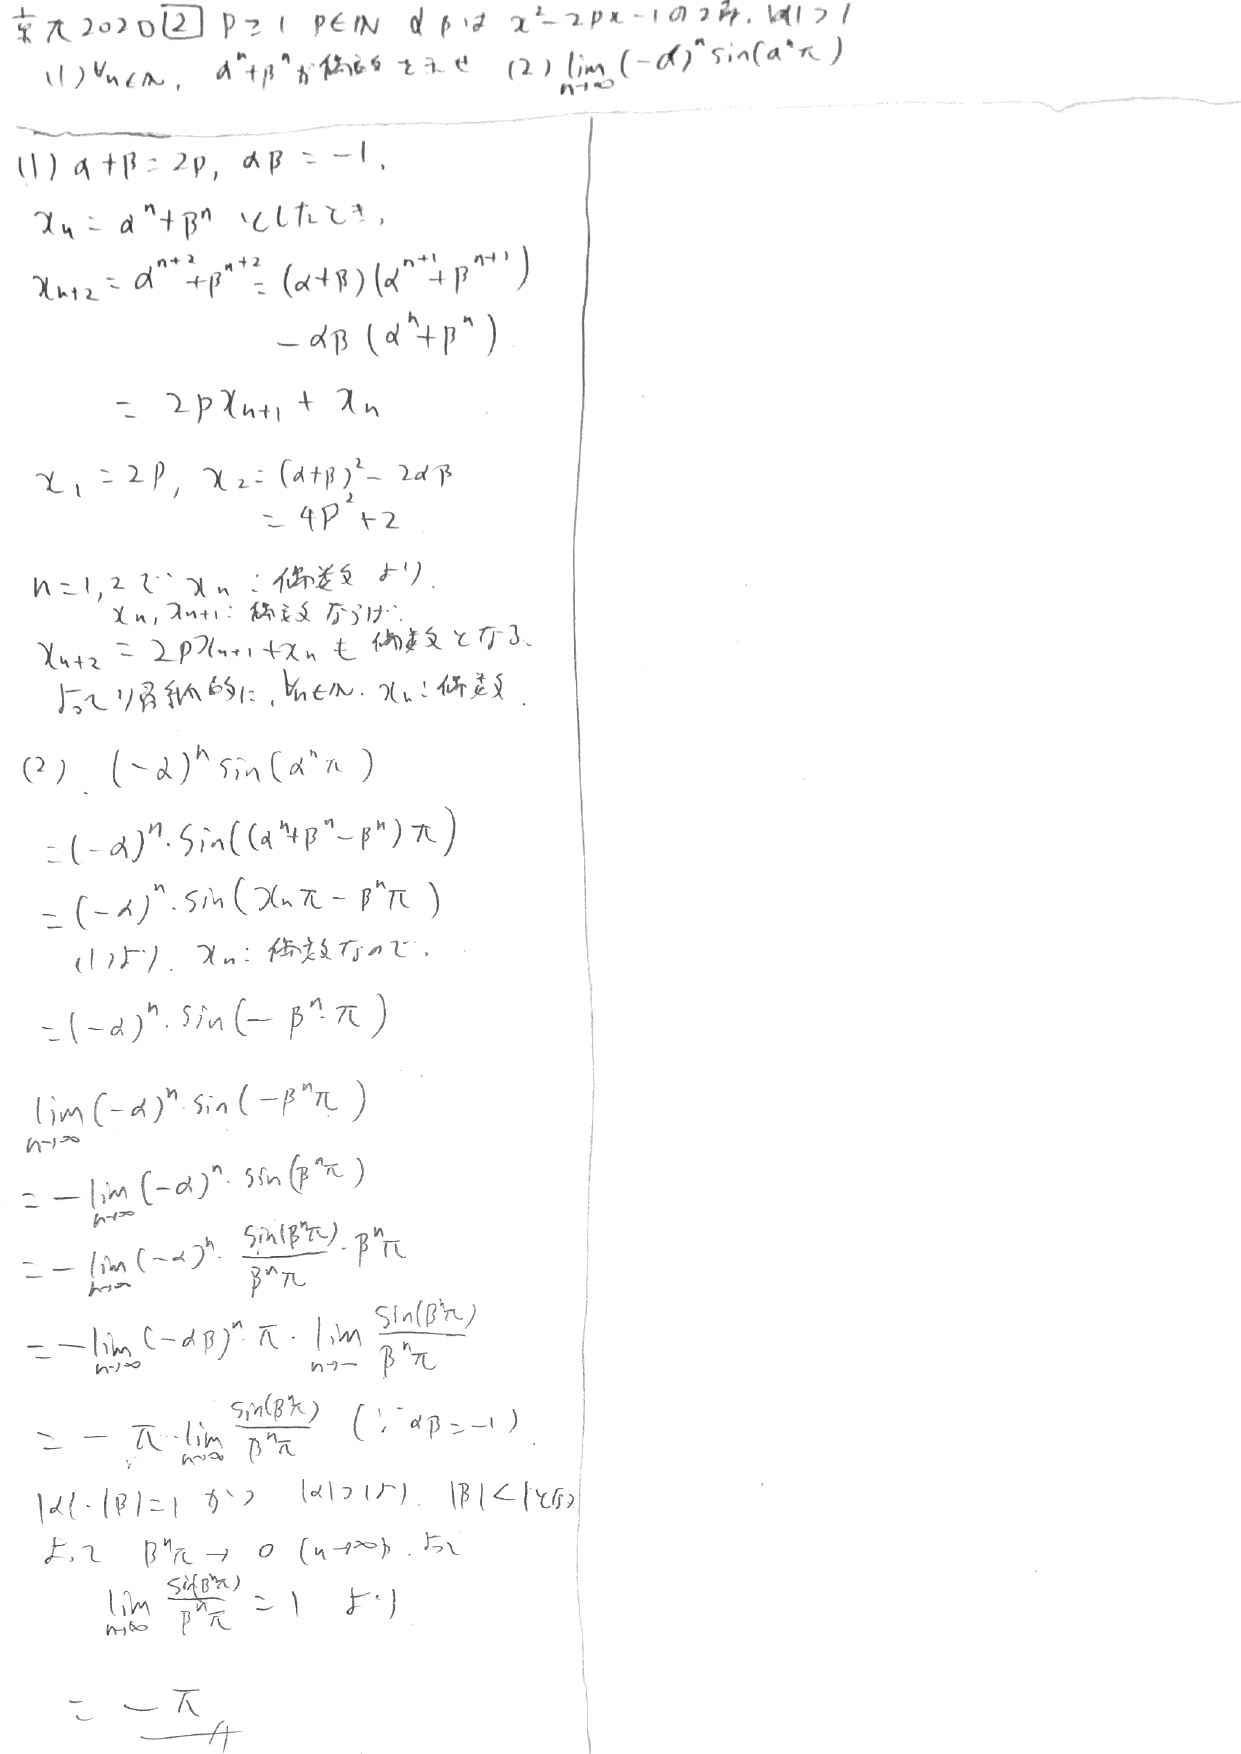 京大2020 [2] p≥1 p∈ℕ α βは x²-2px-1の2解. |α|>1
(1) ∀n∈ℕ, αⁿ+βⁿが偶数を示せ (2) lim_{n→∞} (-α)ⁿ sin(αⁿπ)
(1) α+β=2p, αβ=-1,
xₙ=αⁿ+βⁿ としたとき,
xₙ₊₂=αⁿ⁺²+βⁿ⁺²=(α+β)(αⁿ⁺¹+βⁿ⁺¹)
-αβ(αⁿ+βⁿ)
= 2pxₙ₊₁ + xₙ
x₁=2p, x₂=(α+β)²-2αβ
=4p²+2
n=1,2で xₙ:偶数 より.
xₙ, xₙ₊₁:偶数ならば.
xₙ₊₂ = 2pxₙ₊₁+xₙ も 偶数となる.
よって帰納的に, ∀n∈ℕ. xₙ:偶数.
(2). (-α)ⁿ sin(αⁿπ)
=(-α)ⁿ・sin((αⁿ+βⁿ-βⁿ)π)
=(-α)ⁿ・sin(xₙπ-βⁿπ)
(1)より. xₙ:偶数なので,
=(-α)ⁿ・sin(-βⁿ・π)
lim_{n→∞} (-α)ⁿ・sin(-βⁿπ)
= -lim_{n→∞} (-α)ⁿ・sin(βⁿπ)
= -lim_{n→∞} (-α)ⁿ・sin(βⁿπ)/βⁿπ・βⁿπ
= -lim_{n→∞} (-αβ)ⁿ・π・lim_{n→∞} sin(βⁿπ)/βⁿπ
= -π・lim_{n→∞} sin(βⁿπ)/βⁿπ (∵αβ=-1).
|α|・|β|=1 かつ |α|>1より. |β|<1となる
よって βⁿπ → 0 (n→∞). よって
lim_{n→∞} sin(βⁿπ)/βⁿπ = 1 より
= -π